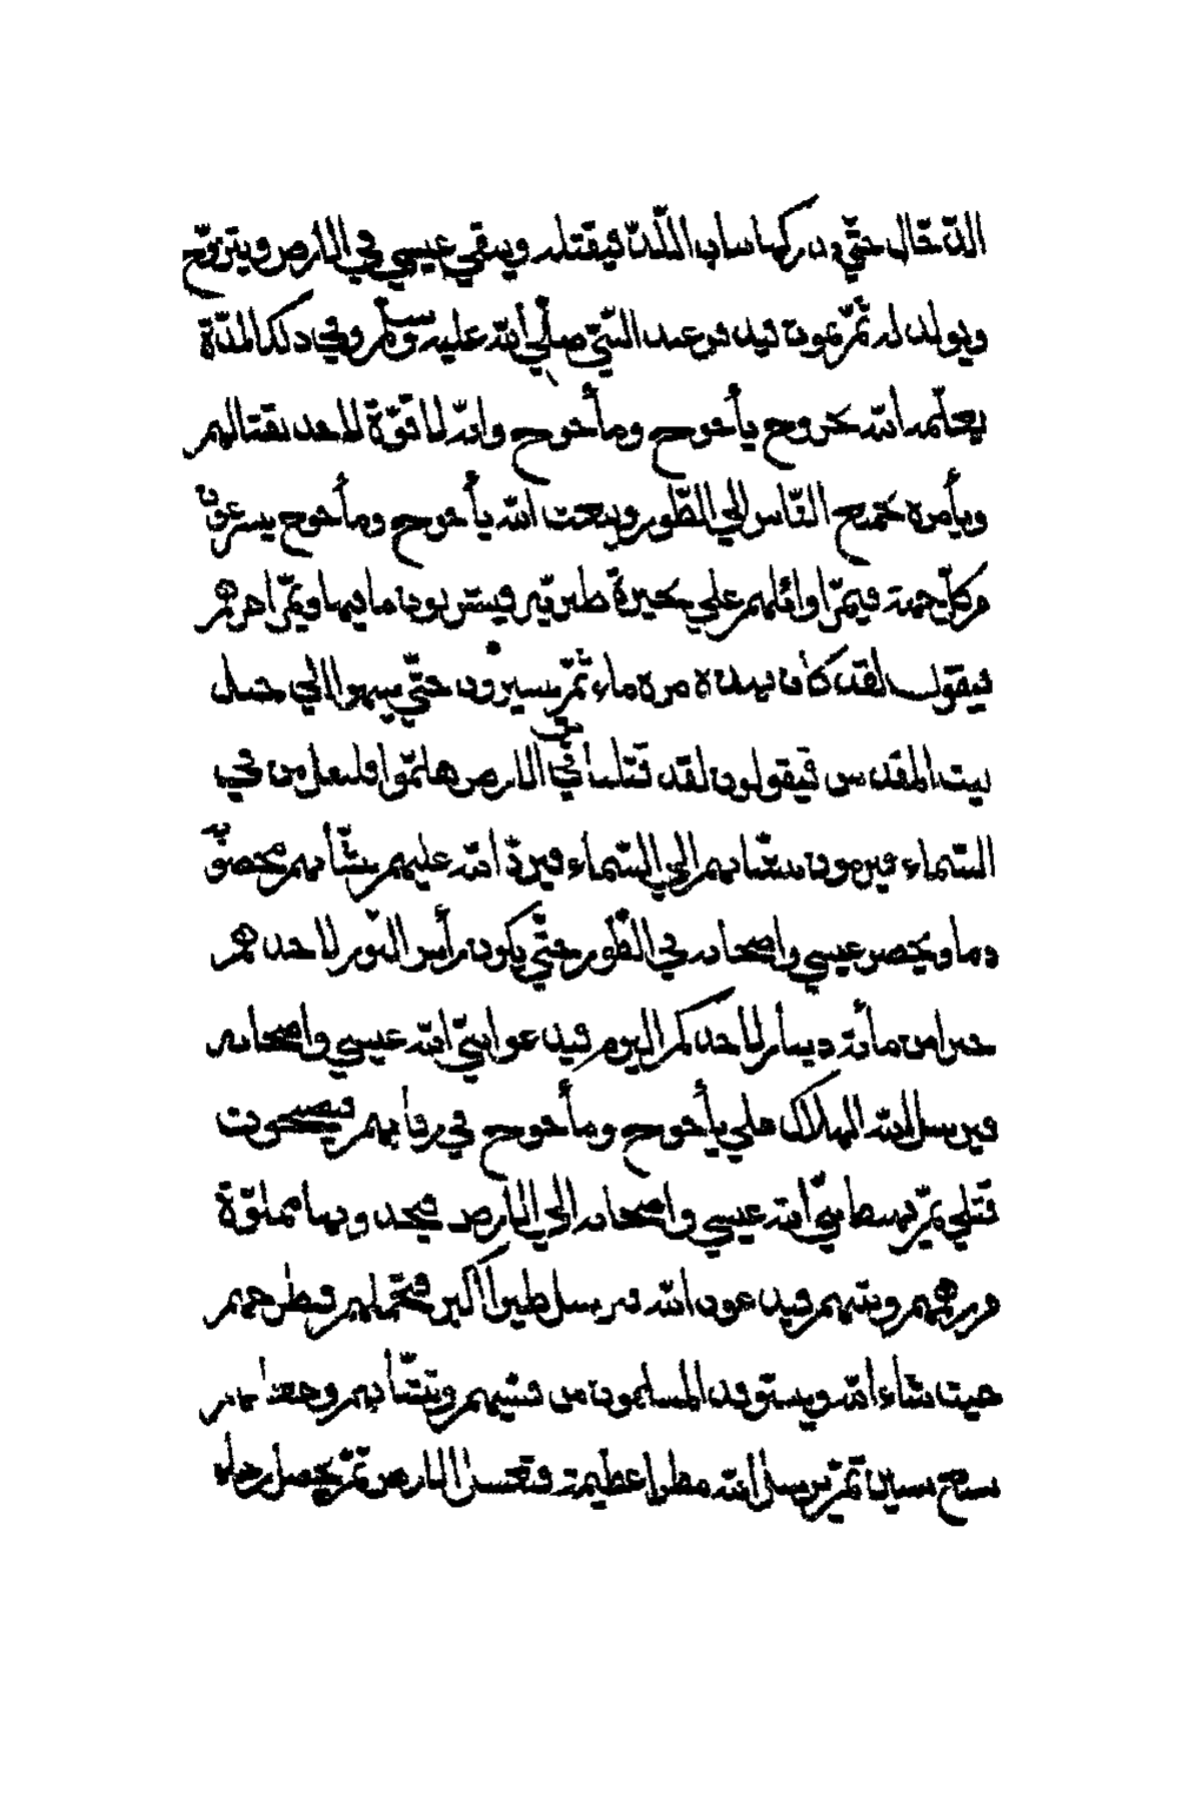 الدّجّال حتّي يدركها بباب اللّدّ فيقتله ويبقي عيسي في الارض ويتزوّج
ويولد له ثمّ يموت فيدفن عند النّبيّ صلّي الله عليه وسلّم وفي دلك المدّة
يعلّمه الله بخروج يأجوج ومأجوج وانّه لا قوّة لاحد بقتالهم
ويأمره بجميع النّاس الي الطّور ويبعث الله يأجوج ومأجوج يسرعون
من كلّ جهة فيمرّ اوائلهم علي بحيرة طبريّه فيشربون ما فيها ويمرّ اخرهم
فيقول لقد كان بهده مره ماء ثمّ يسيرون حتّي ينتهوا الي جبل
بيت المقدس فيقولون لقد قتلنا من في الارض هلمّوا فلنقتل من في
السّماء فيرمون بنشّابهم الي السّماء فيردّ الله عليهم نشّابهم مخضوبه
دما ويحصر عيسي واصحابه في الطّور حتّي يكون رأس الثور لاحدهم
خيرا من مأئة دينار لاحدكم اليوم فيدعوا نبيّ الله عيسي واصحابه
فيرسل الله الهلاك علي يأجوج ومأجوج في رقابهم فيصبحون
قتلي ثمّ يهبط نبيّ الله عيسي واصحابه الي الارض فيجدونها مملوّة
من زهمهم ونتنهم فيدعون الله فيرسل طيرا اكبر فتحملهم فتطرحهم
حيث شاء الله ويستوقد المسلمون من قسيّهم ونشّابهم وجعابهم
سبع سنين ثمّ يرسل الله مطرا عظيمة فتغسل الارض ثمّ يحصل رخاء